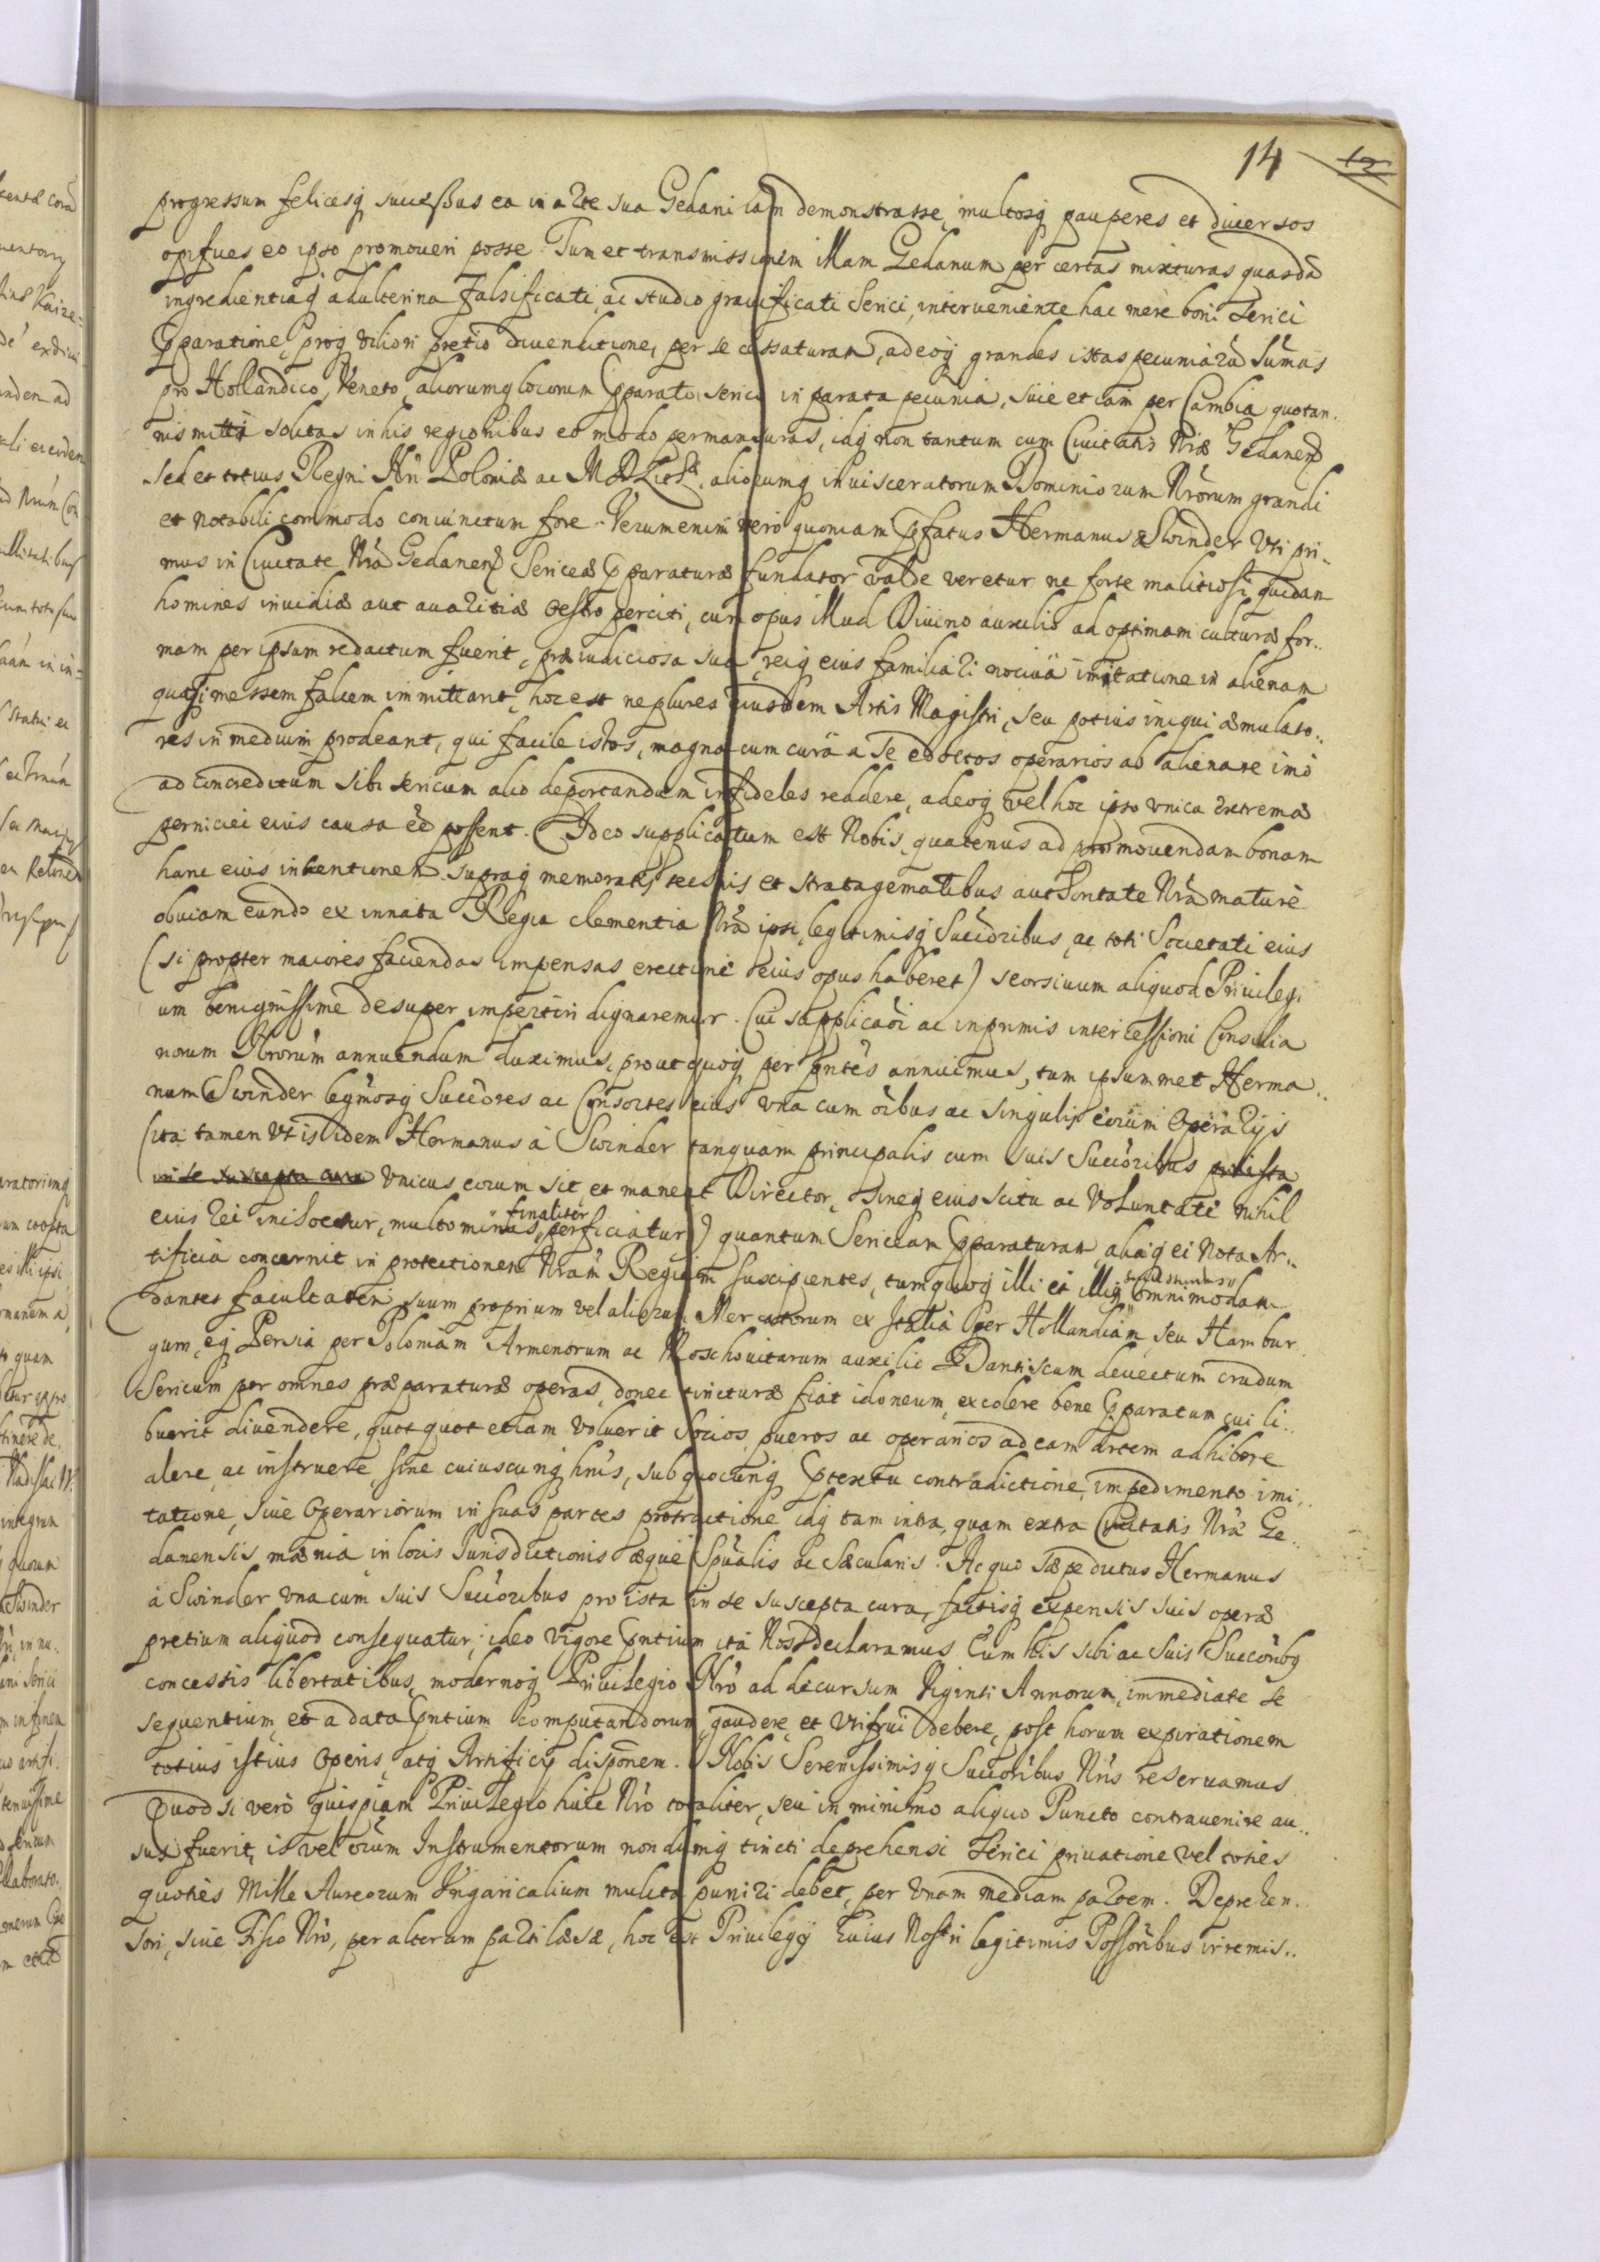 14
progressum felicesq successus ea in arte sua Gedani iam demonstrasse, multosq pauperes et diversos
opifices eo ipso promoveri posse. Tum et transmissionem illam Gedanum per certas mixturas quasdā
ingredientiaq adulterina falsificati, ac studio gravificati Serici, interveniente hac mere boni Serici
Pparatione, proq viliori pretio divenditione, per se cessaturam, adeoq grandes istas pecuniarū Sumas
pro Hollandico, Veneto, aliorumq locorum Pparato serico in parata pecunia, sive etiam per Cambia quotan..
nis mitti solitas in his regionibus eo modo permansuras, idq non tantum cum Civitatis Nræ Gedanen
sed et totius Regni Nri Poloniæ ac M D Lith, aliorumq invisceratorum Dominiorum Nrorum grandi
et notabili commodo coniunctum fore. Verumenim vero quoniam Pfatus Hermanus a Swinder Uti pri..
mus in Civitate Nra Gedanen Sericeæ Pparaturæ fundator valde veretur ne forte malitiosi quidam
homines invidiæ aut avaritiæ oestro perciti, cum opus illud Divino auxilio ad optimam culturæ for..
mam per ipsum redactum fuerit, præiudiciosa sua, reiq eius familiari nociva imitatione in alienam
quasi messem falcem immittant, hoc est ne plures eiusdem Artis Magistri, seu potius iniqui æmulato..
res in medium prodeant, qui facile istos, magna cum cura a se edoctos operarios ab alienare imo
ad concreditum sibi sericum alio deportandum infideles reddere, adeoq vel hoc ipso unica extremæ
perniciei eius causa eē possent. Ideo supplicatum est Nobis, quatenus ad promovendam bonam
hanc eius intentionem supraq memoratis technis et stratagematibus authoritate Nra mature
obviam eundo ex innata Regia clementia Nra ipsi, legitimisq Succoribus, ac toti Societati eius
(si propter maiores faciendas impensas erectione eius opus haberet) seorsivum aliquod Privilegi
um benignissime desuper impertiri dignaremur. Cui supplicaõi ac inprimis intercessioni Consilia
riorum Nrorum annuendum duximus, prout quoq per pntes annuimus, tum ipsummet Herma..
num a Swinder legmosq Succores ac Consortes eius una cum oibus ac singulis eorum Operarijs
(ita tamen ut is idem Hermanus à Swinder tanquam principalis cum suis Succoribus pro ista
in se suscepta cura unicus eorum sit, et maneat Director, sineq eius scitu ac voluntate nihil
eius rei inchoetur, multo minus finaliter perficiatur) quantum Sericeam Pparaturam, aliaq ei nota Ar..
tificia concernit in protectionem Nram Regiam suscipientes, tum quoq illi et illiq omnimodam
dantes facultatem, suum proprium vel aliorum Mercatorum ex Italia per Hollandiam, seu Hambur..
gum, eq Persia per Poloniam Armenorum ac Moschovitarum auxilio Dantiscum devectum crudum
Sericum per omnes præparaturæ operas, donec tincturæ fiat idoneum, excolere bene Pparatum cui li..
buerit divendere, quot quot etiam voluerit Socios, pueros ac operarios ad eam artem adhibere
alere, ac instruere, sine cuiuscunq hnis, sub quocunq Ptextu contradictione, impedimento imi..
tatione, sive Operariorum in suas partes protractione idq tam intra, quam extra Civitatis Nræ Ge..
danensis mænia, in locis Jurisdictionis æque Spualis ac Sæcularis. Ac quo sæpe dictus Hermanus
à Swinder una cum suis Succoribus pro ista in se suscepta cura, factisq expensis suis operæ
pretium aliquod consequatur, ideo vigore Pntium ita Nos declaramus Eum his sibi ac Suis Succoribq
concessis libertatibus, modernoq Privilegio Nro ad decursum Viginti Annorum, immediate se
sequentium, et a data Pntium computandorum gaudere, et Uti frui debere, post horum expirationem
totius istius Operis, atq Artificij disponem. Nobis Serenissimisq Succoribus Nris reservamus
Quod si vero quispiam Privilegio huic Nro totaliter, seu in minimo aliquo Puncto contravenire au..
sus fuerit, is vel oium Instrumentorum nondumq tincti deprehensi Serici privatione vel toties
quoties Mille Aureorum Ungaricalium mulcta puniri debet, per Unam mediam partem. Deprehen..
sori, sive Fisco Nro, per alteram parti læsæ, hoc est Privilegij huius Nostri legitimis Possoribus irremis..